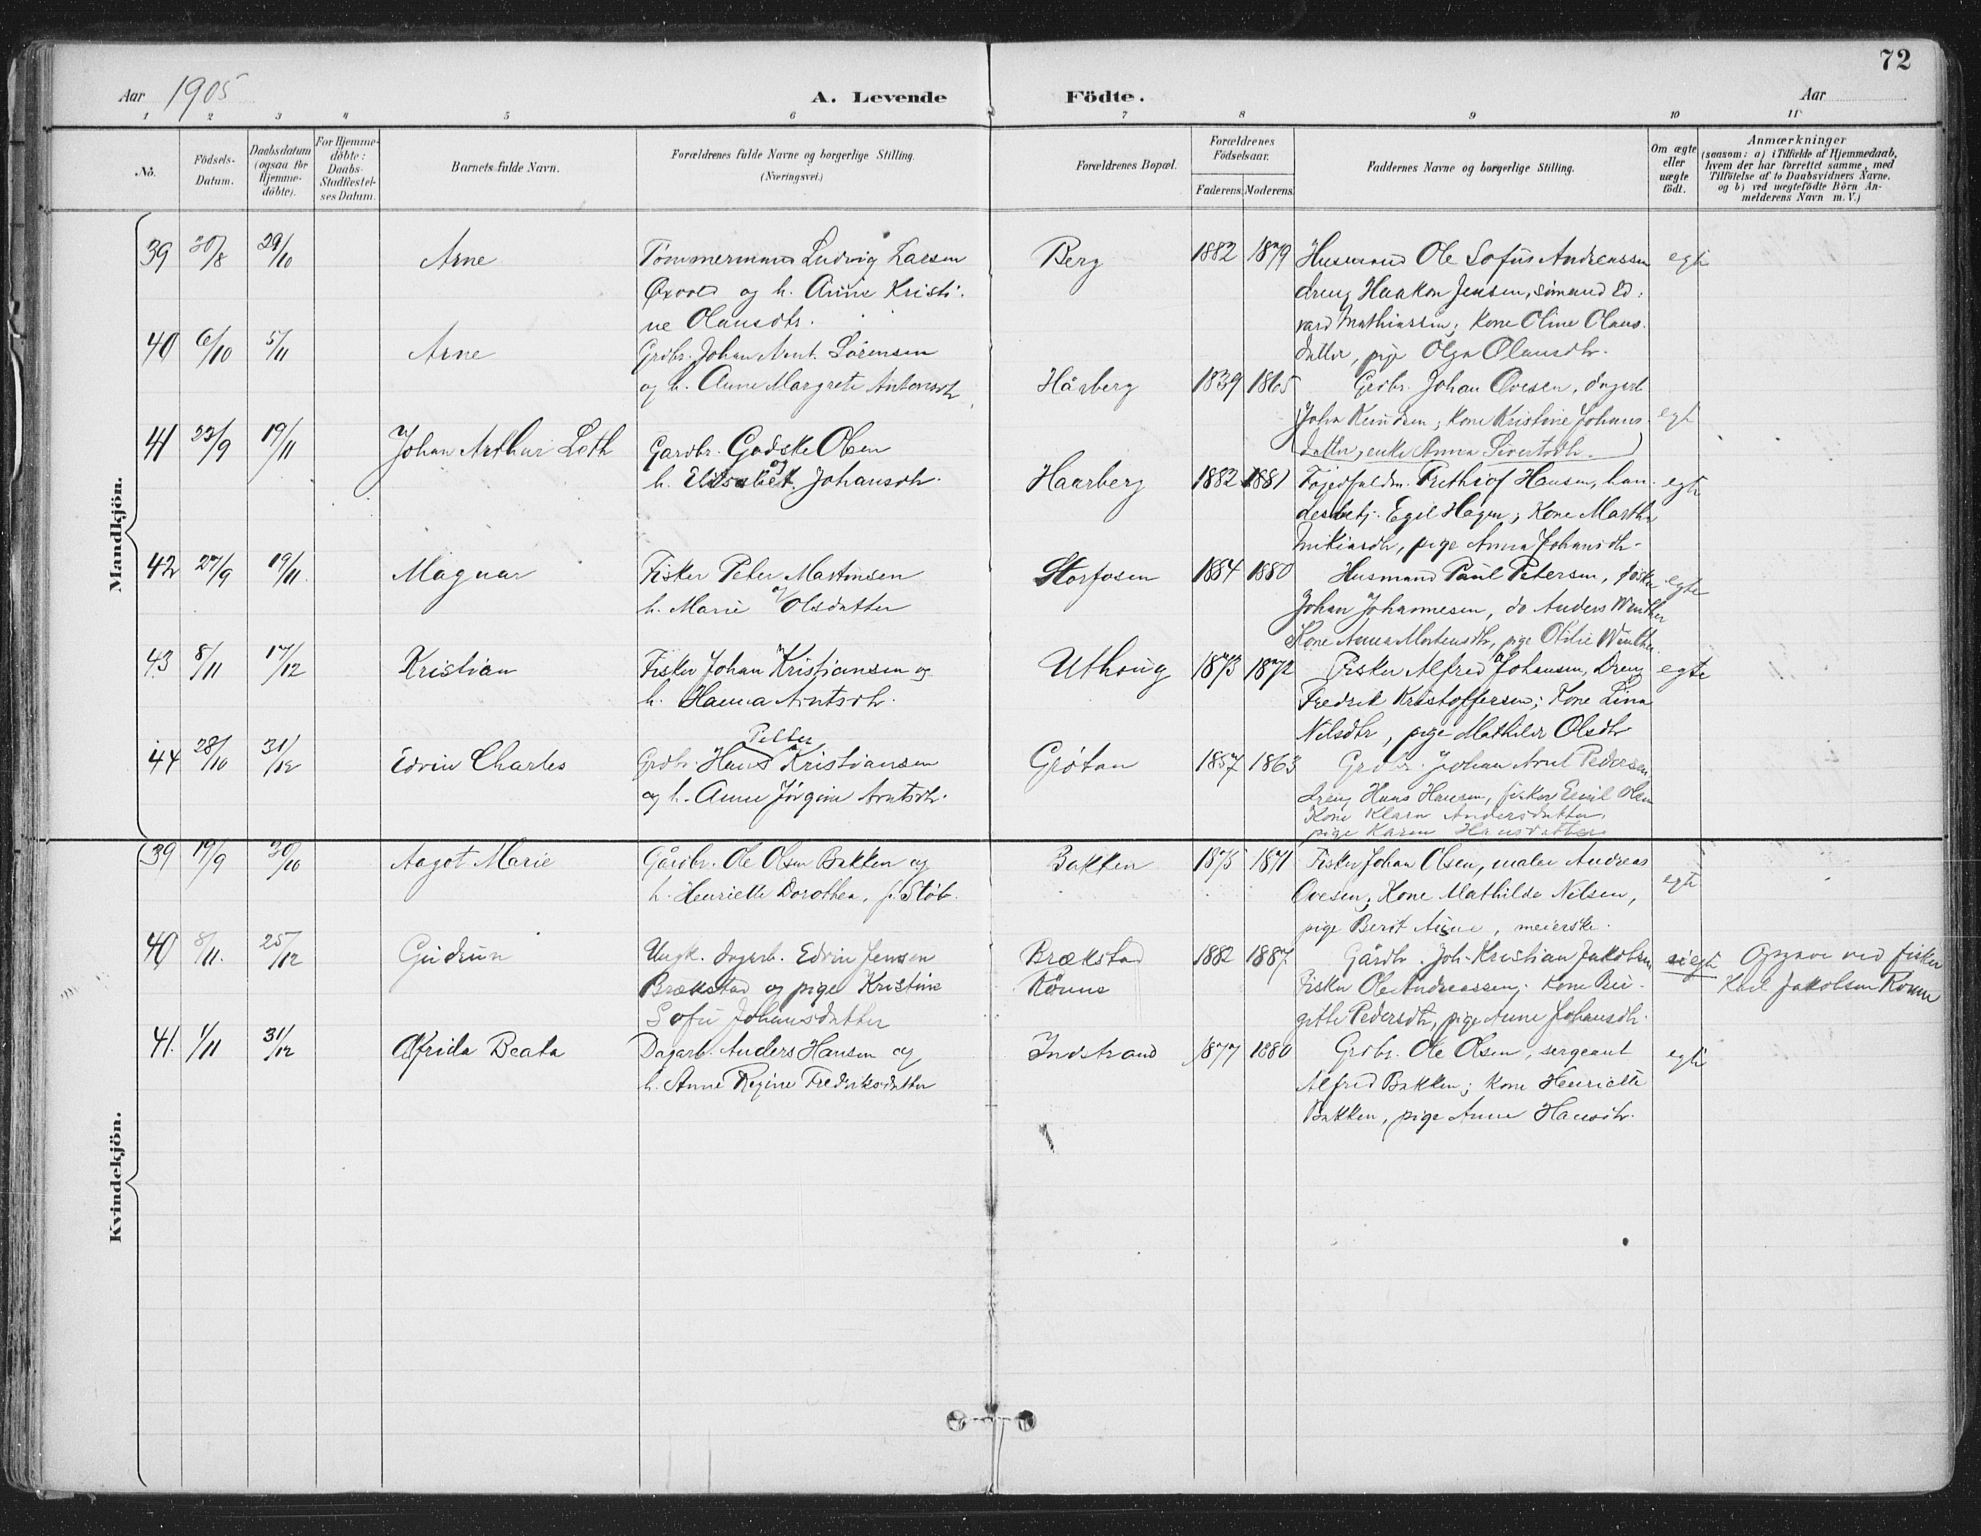 72
Aar 1905 A. Levende Födte. Aar
1 2 3 4 5 6 7 8 9 10 11
No. Födsels-Datum. Daabsdatum (ogsaa for Hjemmedöbte). For Hjemmedöbte: Daabs-Stadfæstelses Datum. Barnets fulde Navn. Forældrenes fulde Navne og borgerlige Stilling. (Næringsvei.) Forældrenes Bopæl. Forældrenes Födselsaar. Faderens. Moderens. Faddernes Navne og borgerlige Stilling. Om ægte eller uægte födt. Anmærkninger (saasom: a) i Tilfælde af Hjemmedaab, hvem der har forrettet samme, med Tilföielse af to Daabsvidners Navne. og b) ved uægtefödte Börn Anmelderens Navn m. V.)
Mandkjön.
39 30/8 29/10 Arne Tømmermand Ludvig Larsen Berg 1882 1879 Husmand Ole Sofus Andreassen egte
Øxvold og h. Anne Kristi- dreng Haakon Jensen, sømand Ed-
ne Olausdtr. vard Mathiassen; Kone Oline Olaus-
datter, pige Olga Olausdtr.
40 6/10 5/11 Arne Grdbr. Johan Arnt Sørensen
og h. Anne Margrete Antonsdtr Hårberg 1839 1865 Grdbr. Johan Ovesen, dagarb
John Knudsen; Kone Kristine Johans- egt
datter, enke Anna Sivertsdtr.
41 23/9 19/11 Johan Arthur Loth Gardbr. Godske Olsen
og h. Elisabet Johansdtr. Haarberg 1882 1881 Frithiof Hansen, han- egte
delsbetj. Egil Hagen; Kone Martha
pige Anna Johansdtr-
42 27/9 19/11 Magnar Fisker Peter Martinsen Storfosen 1884 1880 Husmand Paul Petersen, fisker egte
og h. Marie Olsdatter Johan Johannesen, do Anders Winther
Kone Anna Mortensdtr, pige Otilie Winther
43 8/11 17/12 Kristian Fisker Johan Kristiansen og Uthoug 1873 1872 Fisker Alfred Johansen, Dreng egte
h. Hanna Arntsdtr. Fredrik Kristoffersen; Kone Lina
Nilsdtr, pige Mathilde Olsdtr
44 28/10 31/12 Edvin Charles Grdbr. Hans Petter Kristiansen Grøtan 1857 1863 Grdbr. Johan Arnt Pedersen
og h. Anne Jørgine Arntsdtr. dreng Hans Hansen, fisker Emil Olsen
Kone Klara Andersdatter,
pige Karen Hansdatter
Kvindekjön.
39 19/9 30/10 Aagot Marie Gårdbr. Ole Olsen Bakken og Bakken 1875 1871 Fisker Johan Olsen, maler Andreas egte
h. Henriette Dorothea, f. Støb. Ovesen; Kone Mathilde Nelsen,
pige Berit Aune, meierske.
40 8/11. 25/12 Gudrun Ungk. dagarb. Edvin Jensen Brækstad 1882 1887. Gårdbr. Joh. Kristian Jakobsen uegte Opgave ved fisker
Brækstad og pige Kristine Rönne Fisker Ole Andreassen; Kone Bir- Karl Jakobsen Rønne
Sofie Johansdatter gitte Pedersdtr, pige Anne Johansdtr.
41. 1/11 31/12 Alfrida Beata Dagarb. Anders Hansen og Indstrand 1877 1880 Grdbr. Ole Olsen, sergeant egte
h. Anne Regine Fredriksdatter Alfred Bakken; Kone Henriette
Bakken, pige Anne Hansdtr.